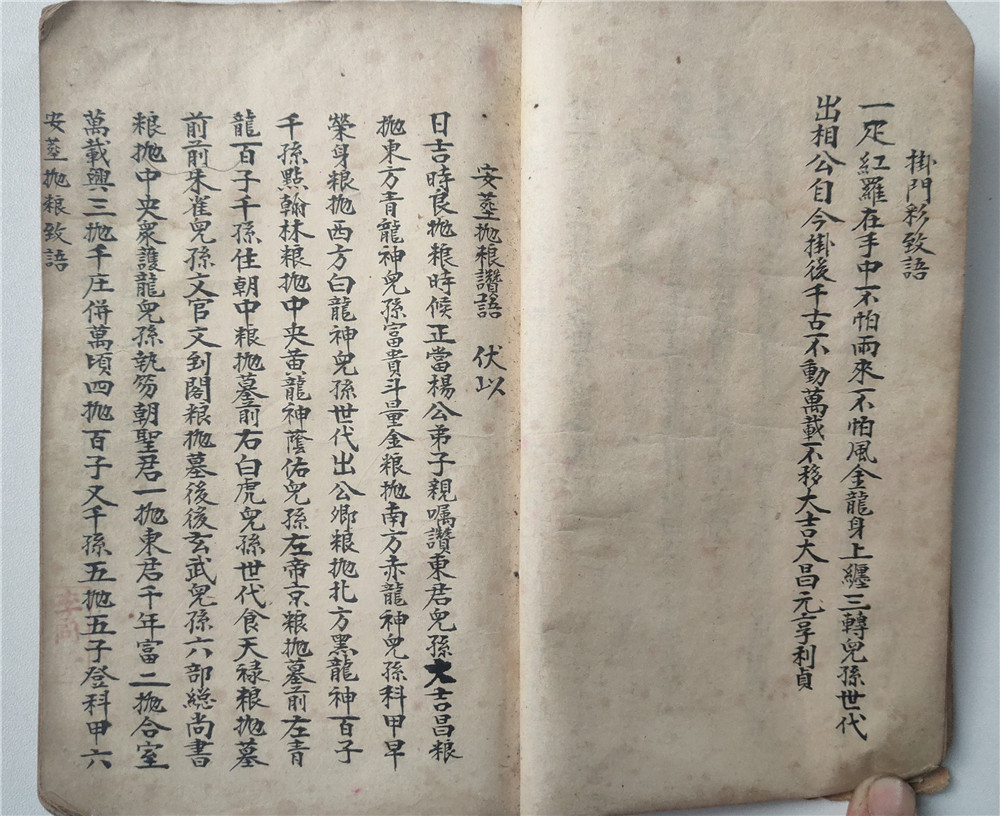 掛門彩致語
一疋紅羅在手中不怕雨來不怕風金龍身上纏三轉兒孫世代
出相公自今掛後千古不動萬載不移大吉大昌元亨利貞
安塟抛粮讚語 伏以
日吉時良抛粮時候正當楊公弟子親嘱讚東居兒孫大吉昌粮
抛東方青龍神兒孫富貴斗量金粮抛南方赤龍神兒孫科甲早
榮身粮抛西方白龍神兒孫世代出公卿粮抛北方黑龍神百子
千孫點翰林粮抛中央黄龍神蔭佑兒孫左帝京粮抛墓前左青
龍百子千孫住朝中粮抛墓前右白虎兒孫世代食天禄粮抛墓
前前朱雀兒孫文官文到閣粮抛墓後後玄武兒孫六部総尚書
粮抛中央衆護龍兒孫執笏朝聖君一抛東君千年富二抛合室
萬載興三抛千庄併萬頃四抛百子又千孫五抛五子登科甲六
安塟抛粮致語